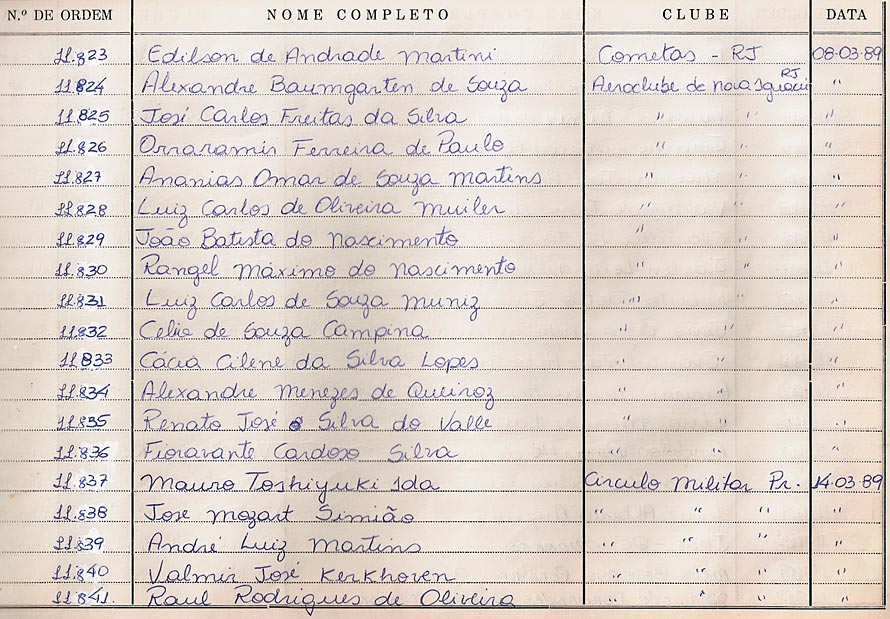 N.º DE ORDEM NOME COMPLETO CLUBE DATA
11.823 Edilson de Andrade Martini Cometas - RJ 08-03-89
11.824 Alexandre Baumgarten de Souza Aeroclube de Nova Iguaçu RJ "
11.825 José Carlos Freitas da Silva " " "
11.826 Orraramir Ferreira de Paulo " " "
11.827 Ananias Omar de Souza Martins " " "
11.828 Luiz Carlos de Oliveira Muiler " " "
11.829 João Batista do Nascimento " " "
11.830 Rangel Máximo do Nascimento " " "
11.831 Luiz Carlos de Souza Muniz " " "
11.832 Celia de Souza Campina " " "
11.833 Cácia Cilene da Silva Lopes " " "
11.834 Alexandre Menezes de Queiroz " " "
11.835 Renato José Silva do Valle " "
11.836 Fioravante Cardoso Silva " " "
11.837 Mauro Toshiyuki Ida Circulo Militar Pr. 14-03-89
11.838 Jose Mozart Simião " " " "
11.839 André Luiz Martins " " " "
11.840 Valmir José Kerkhoven " " " "
11.841. Raul Rodrigues de Oliveira " " " "